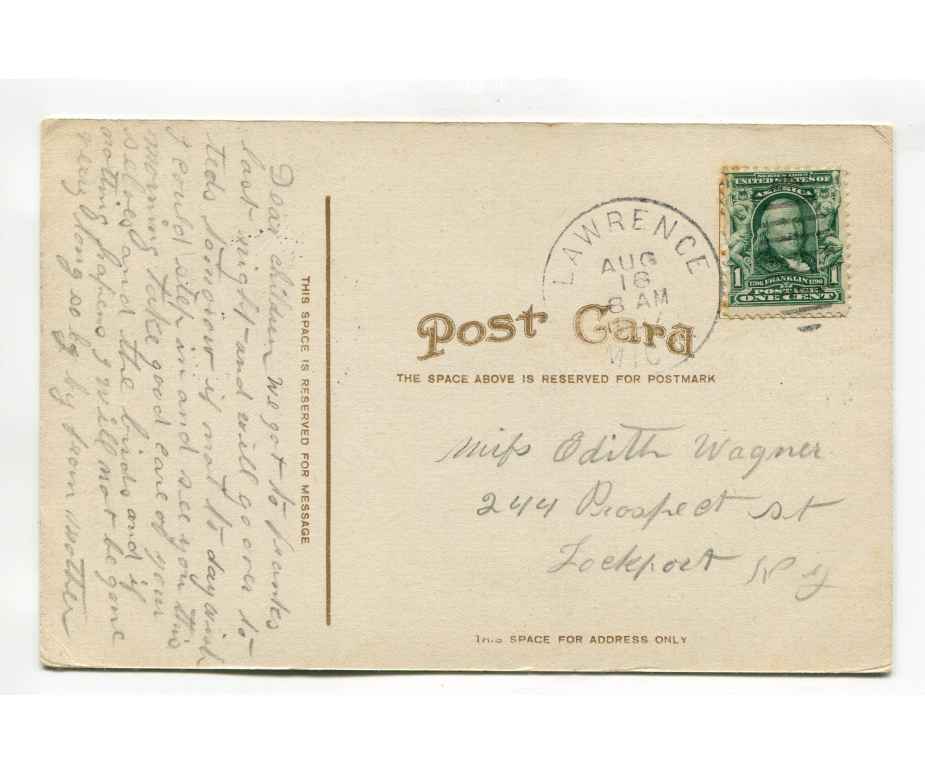 Dear children we got to Frankes
last night and will go over to
teds tomorow if not to day wish
I could step in and see you this
morning take good care of your
selves and the birds and if
nothing hapens I will not be gone
very long so by by from mother
THIS SPACE IS RESERVED FOR MESSAGE
LAWRENCE
AUG
16
8 AM
MIC
SERIES 1902
UNITED STATES OF
AMERICA
1
1706 FRANKLIN 1790
1
POSTAGE
ONE CENT
Post Card
THE SPACE ABOVE IS RESERVED FOR POSTMARK
Miss Edith Wagner
244 Prospect st
Lockport N y
THIS SPACE FOR ADDRESS ONLY